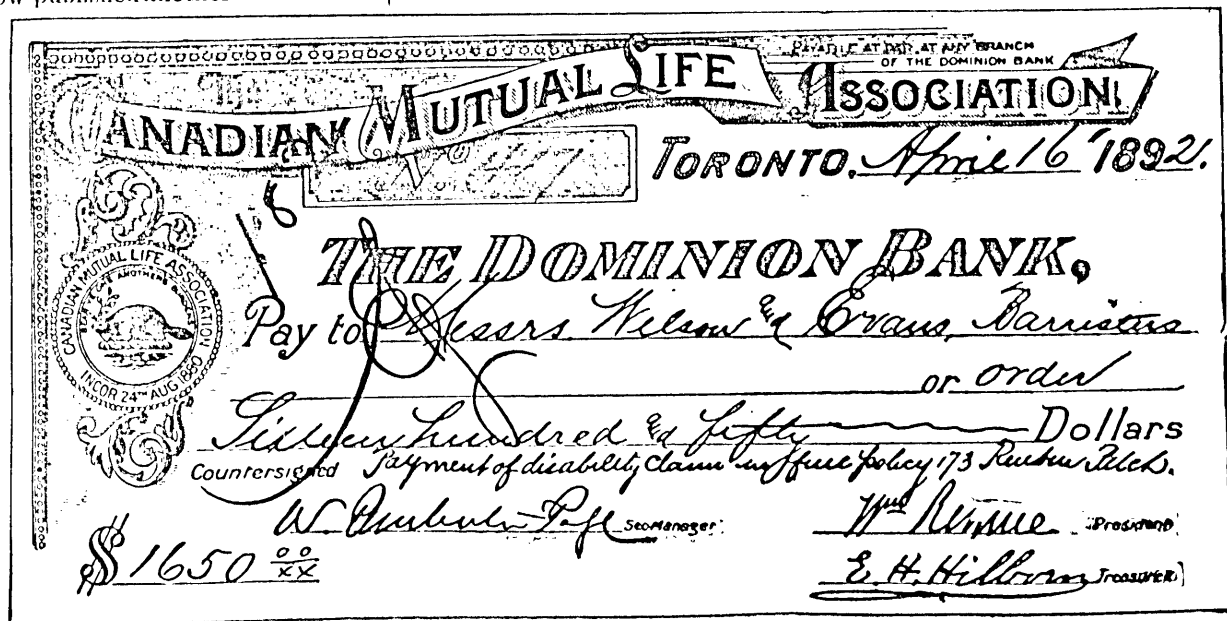 PAYABLE AT PAR AT ANY BRANCH
OF THE DOMINION BANK
CANADIAN MUTUAL LIFE ASSOCIATION
TORONTO, April 16 1892.
THE DOMINION BANK,
CANADIAN MUTUAL LIFE ASSOCIATION
INCOR 24TH AUG 1880
Pay to Messrs. Wilson & Evans, Barristers
or order
Sixteen hundred & fifty Dollars
Countersigned Payment of disability claim in full policy 173
W Pemberton Page Sec Manager
Wm Rennie President
$1650 00/xx
E. H. Hilborn Treasurer